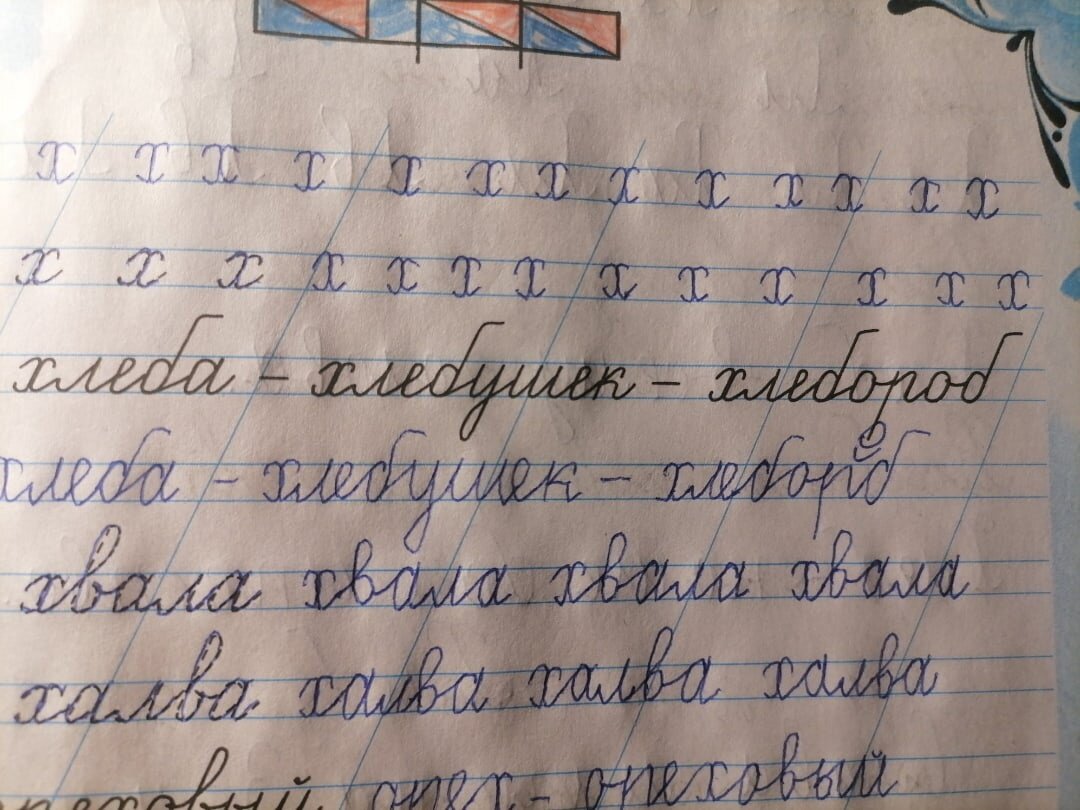 х х х х х х х х х х х х х
х х х х х х х х х х х х х
хлеба - хлебушек - хлебороб
хлеба - хлебушек - хлебороб
хвала хвала хвала хвала
халва халва халва халва
реховый орех - ореховый